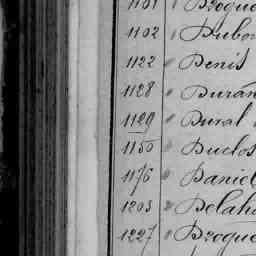 1101 Brogue
1102 Dubo
1122 Denis
1128 Duran
1129 Dural
1150 Duclos
1176 Daniel
1203 Delah
1227 Brogue